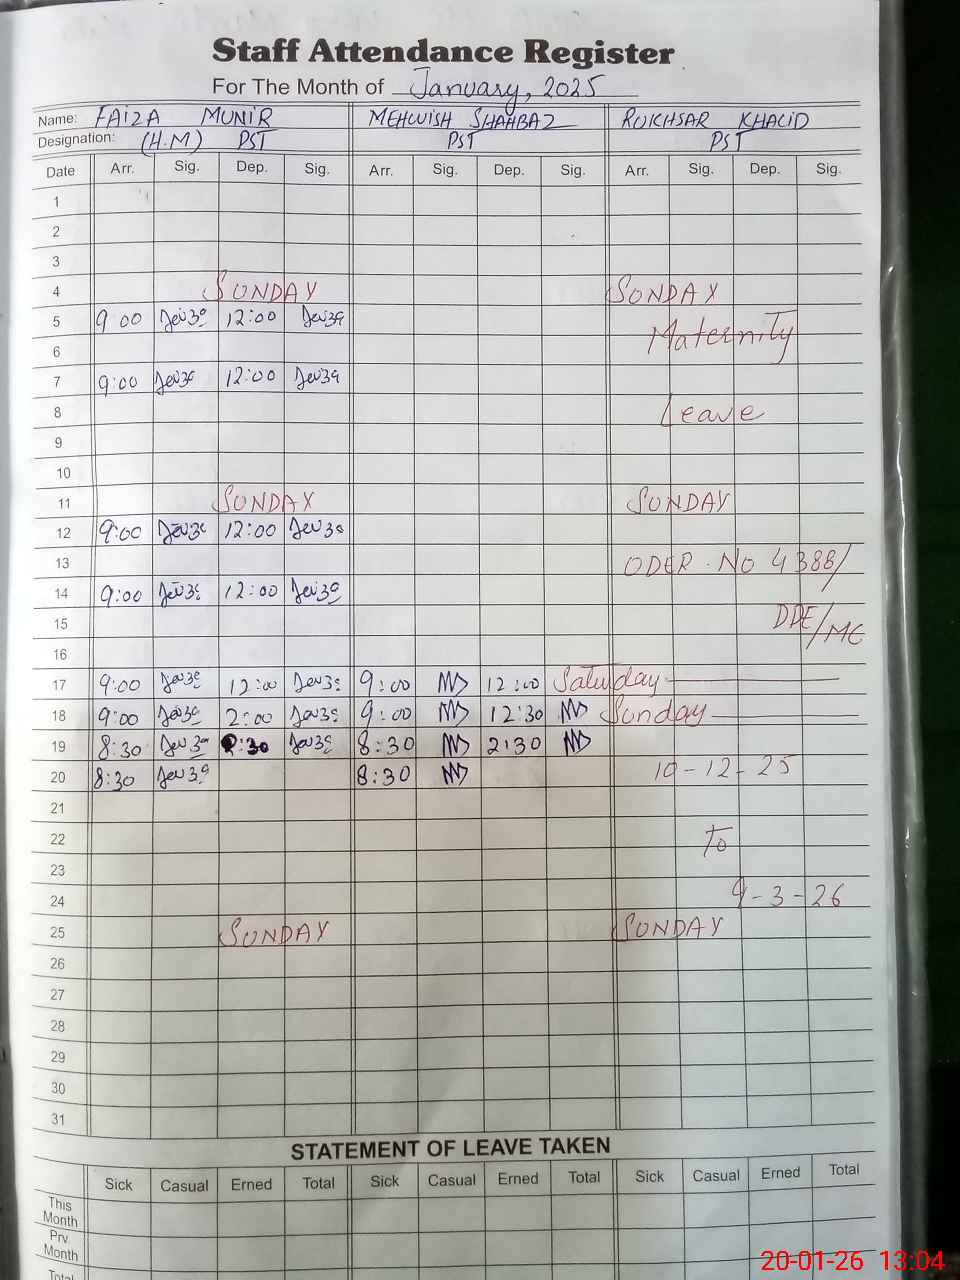 Staff Attendance Register
For The Month of January, 2025
Name: FAIZA MUNIR MEHWISH SHAHBAZ RUKHSAR KHALID
Designation: (H.M) PST PST PST
Date Arr. Sig. Dep. Sig. Arr. Sig. Dep. Sig. Arr. Sig. Dep. Sig.
1
2
3
4 SUNDAY SUNDAY
5 9 00 12:00
Maternity
6
7 9:00 12:00
8 Leave
9
10
11 SUNDAY SUNDAY
12 9:00 12:00
13 ODER . NO 4388/
14 9:00 12:00
15 DDE/ME
16
17 9:00 12:00 9:00 12:00 Saturday
18 9:00 2:00 9:00 12:30 Sunday
19 8:30 2:30 8:30 2:30
20 8:30 8:30 10-12-25
21
22 To
23
24 9-3-26
25 SUNDAY SUNDAY
26
27
28
29
30
31
STATEMENT OF LEAVE TAKEN
Sick Casual Erned Total Sick Casual Erned Total Sick Casual Erned Total
This
Month
Prv.
Month
Total
20-01-26 13:04